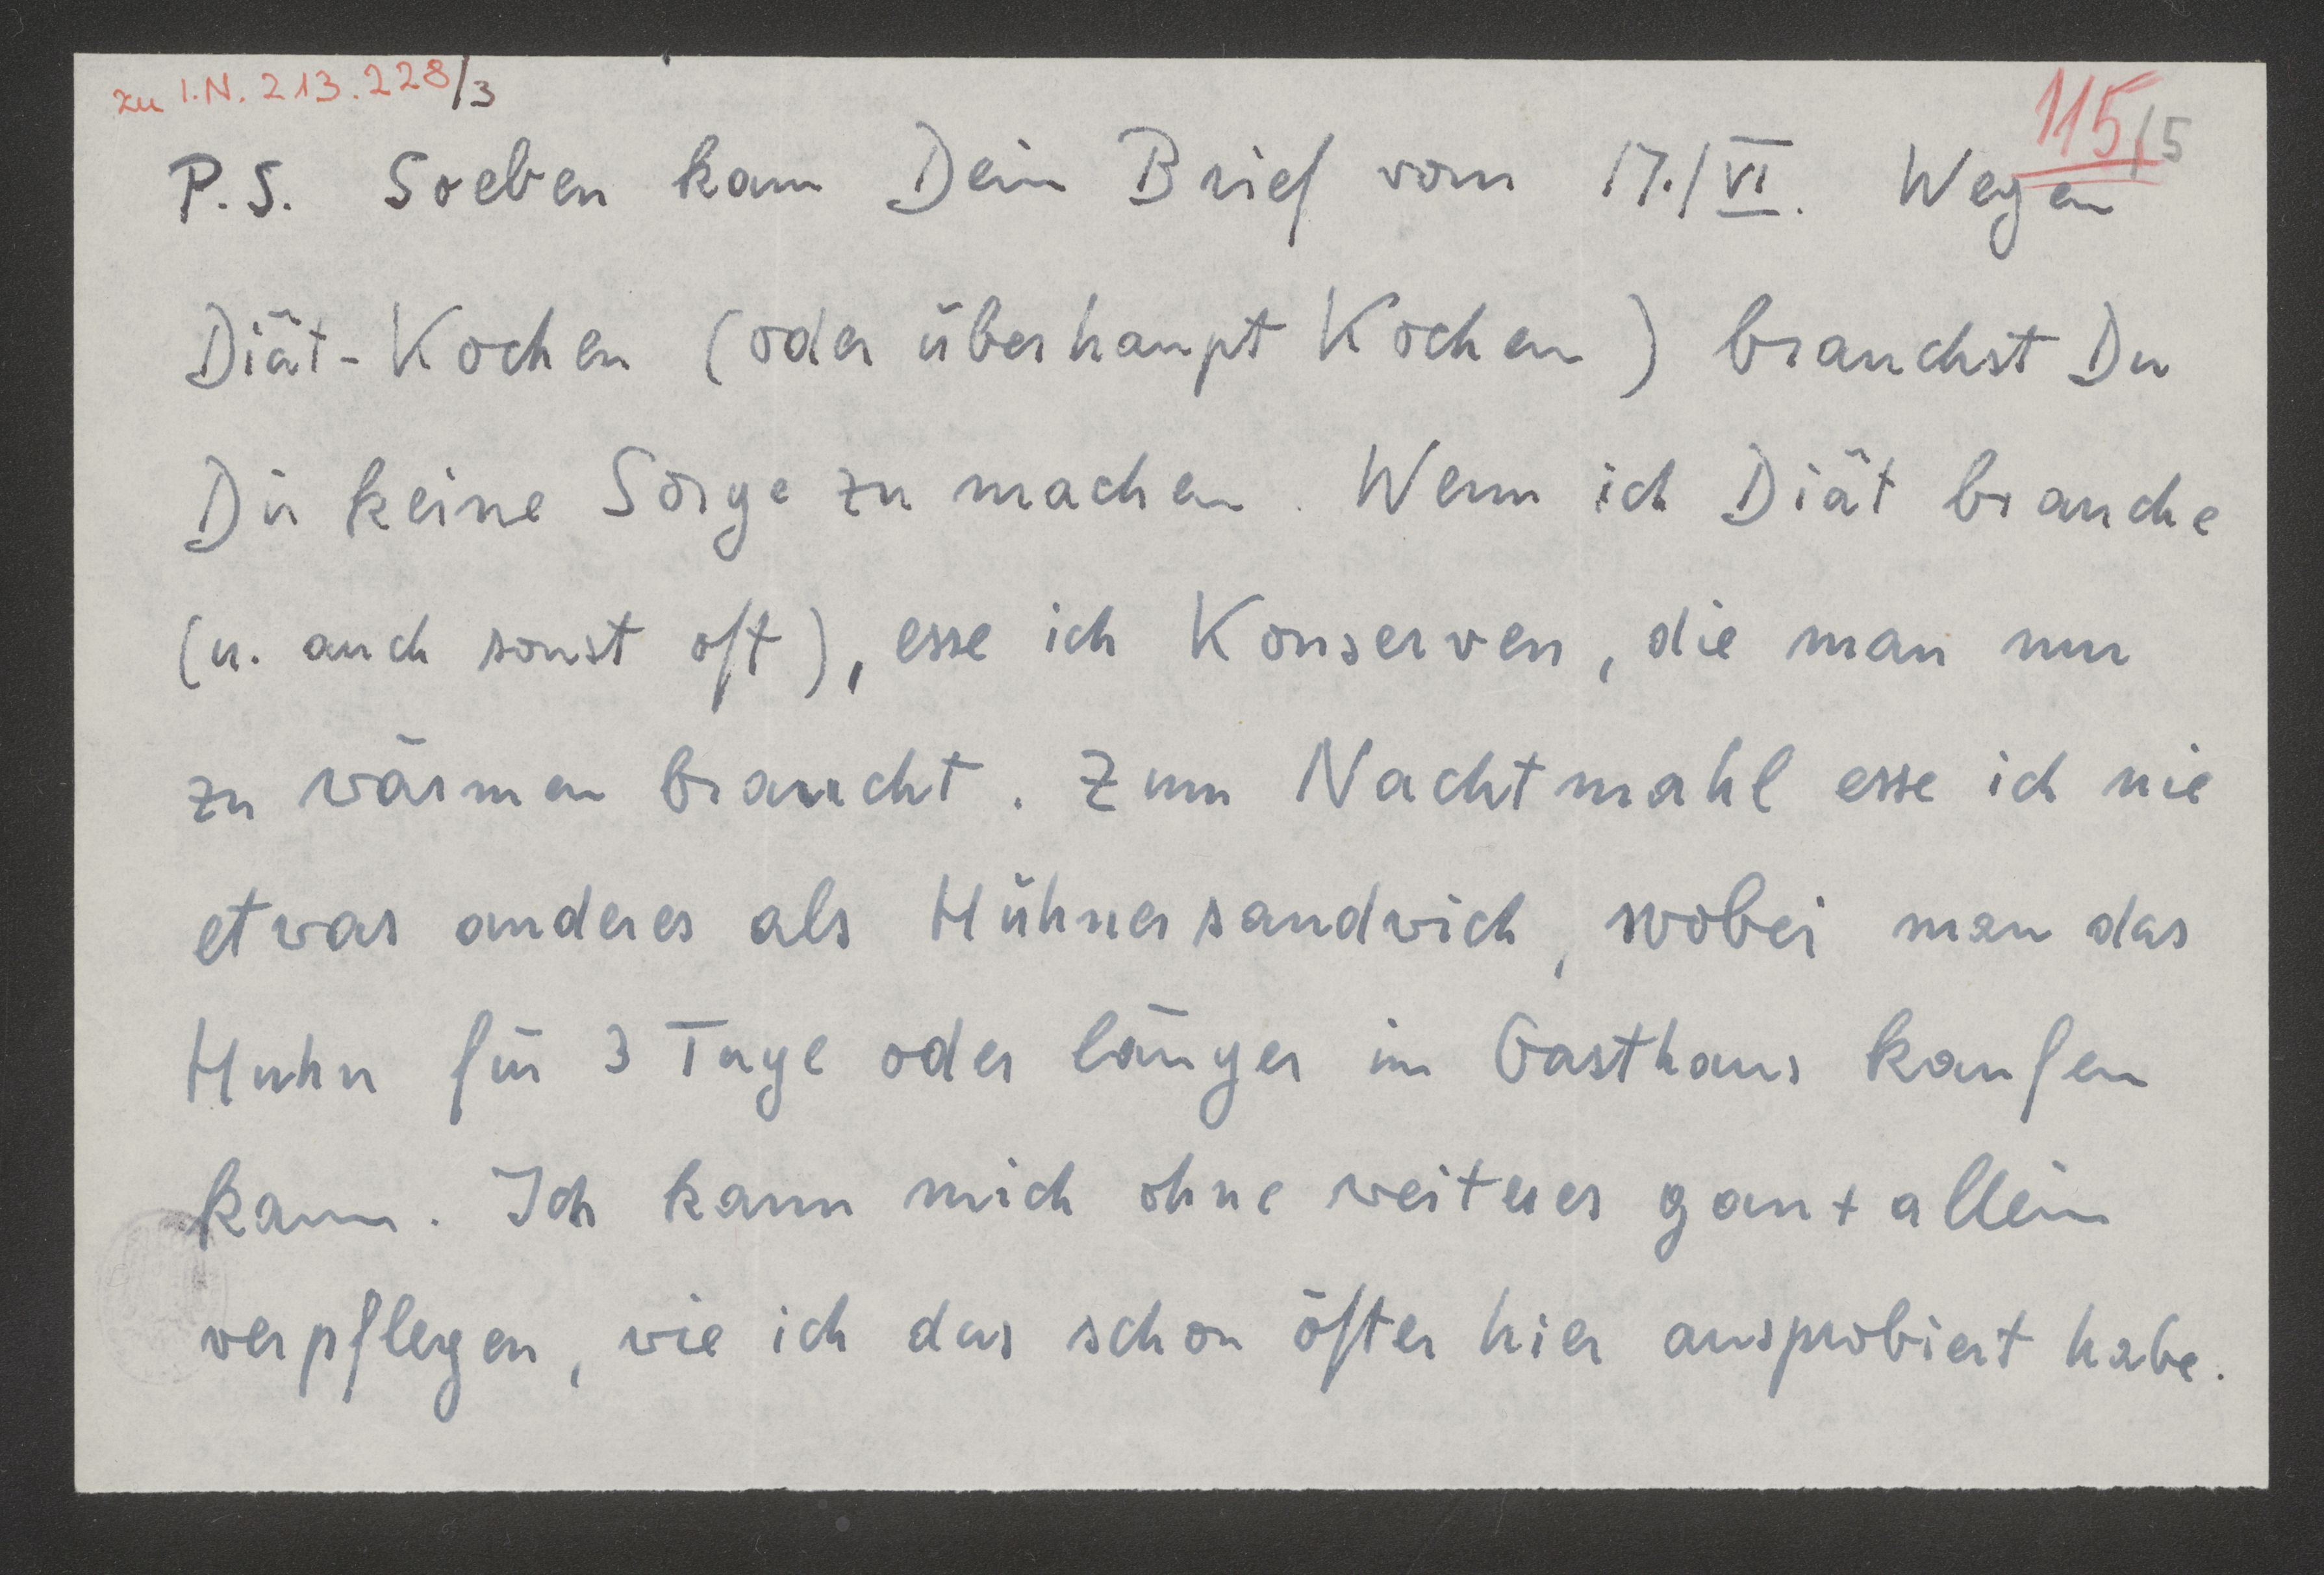 zu I.N. 213.228/3
115/5
P.S. Soeben kam Dein Brief vom 17./VI. Wegen
Diät-Kochen (oder überhaupt Kochen) brauchst Du
Dir keine Sorge zu machen. Wenn ich Diät brauche
(u. auch sonst oft), esse ich Konserven, die man nur
zu wärmen braucht. Zum Nachtmahl esse ich nie
etwas anderes als Hühnersandwich, wobei man das
Huhn für 3 Tage oder länger im Gasthaus kaufen
kann. Ich kann mich ohne weiteres ganz allein
verpflegen, wie ich das schon öfter hier ausprobiert habe.